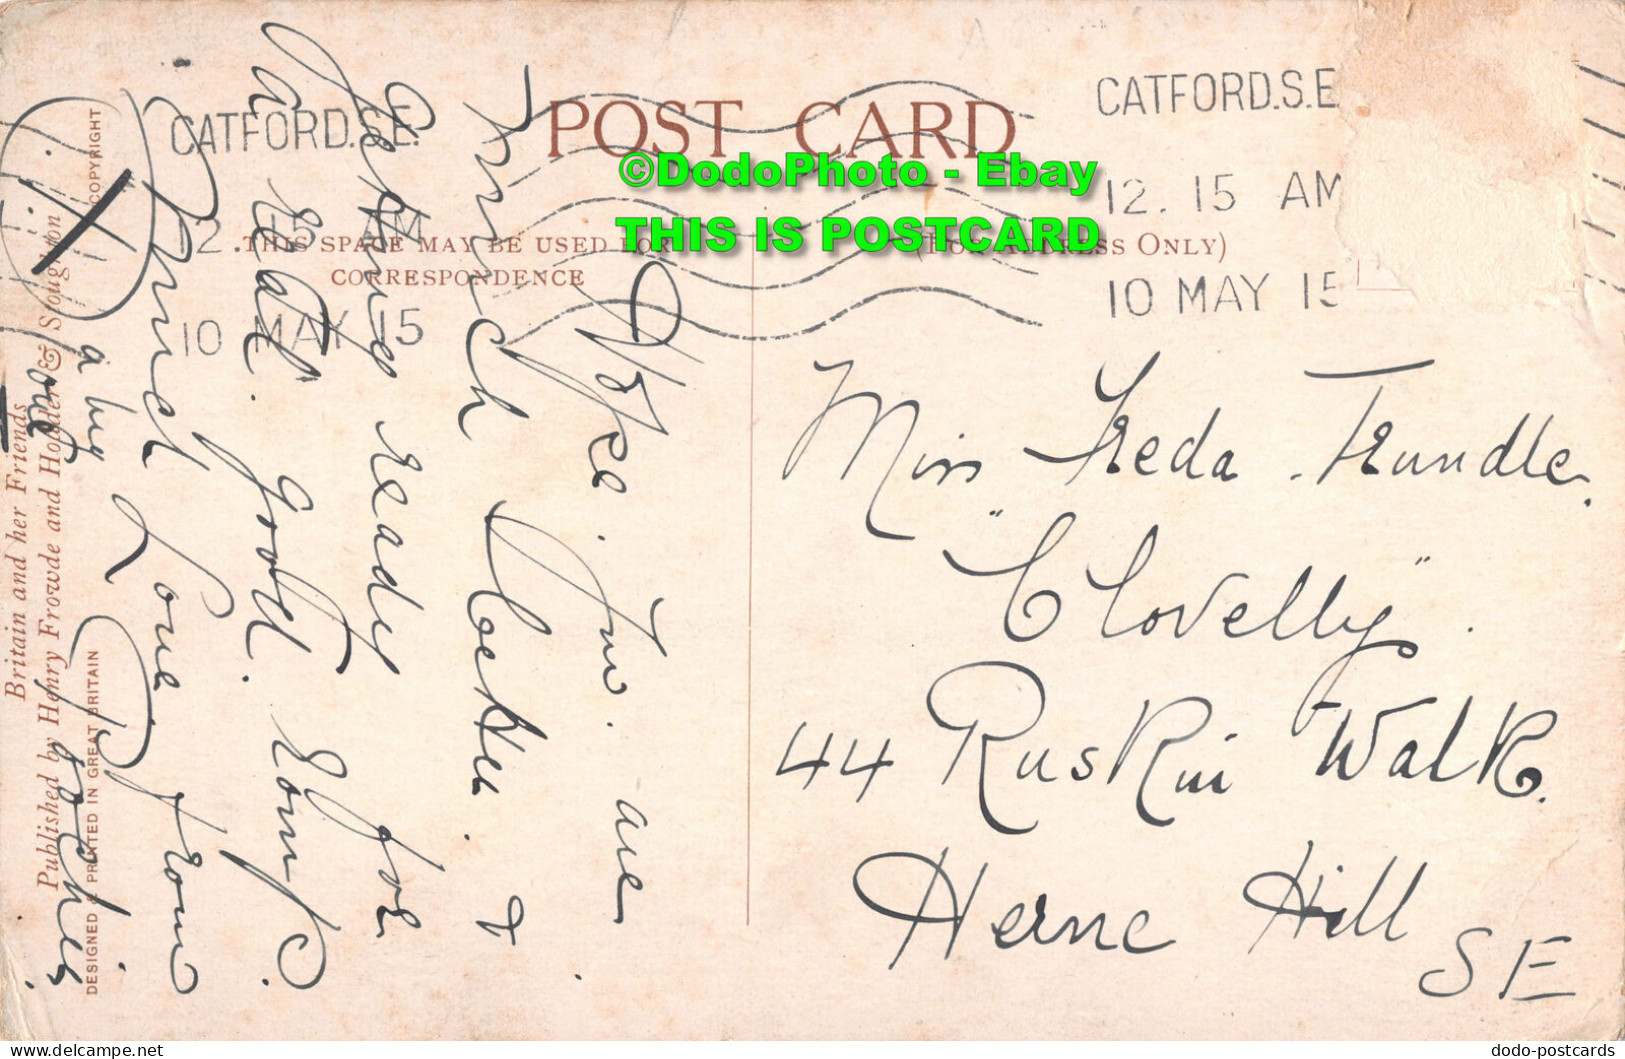 POST CARD
©DodoPhoto - Ebay
THIS IS POSTCARD
CATFORD.S.E.
12. 15 AM
10 MAY 15
CATFORD.S.E
12. 15 AM
10 MAY 15
THIS SPACE MAY BE USED FOR
CORRESPONDENCE
(FOR ADDRESS ONLY)
Hope you are
much better &
getting ready for
a real good romp.
Much Love from
a big
one
Miss Freda Trundle.
"Clovelly".
44 Ruskin Walk.
Herne Hill
SE
COPYRIGHT
DESIGNED & PRINTED IN GREAT BRITAIN
Published by Henry Frowde and Hodder & Stoughton
Britain and her Friends
dodo-postcards
www.delcampe.net